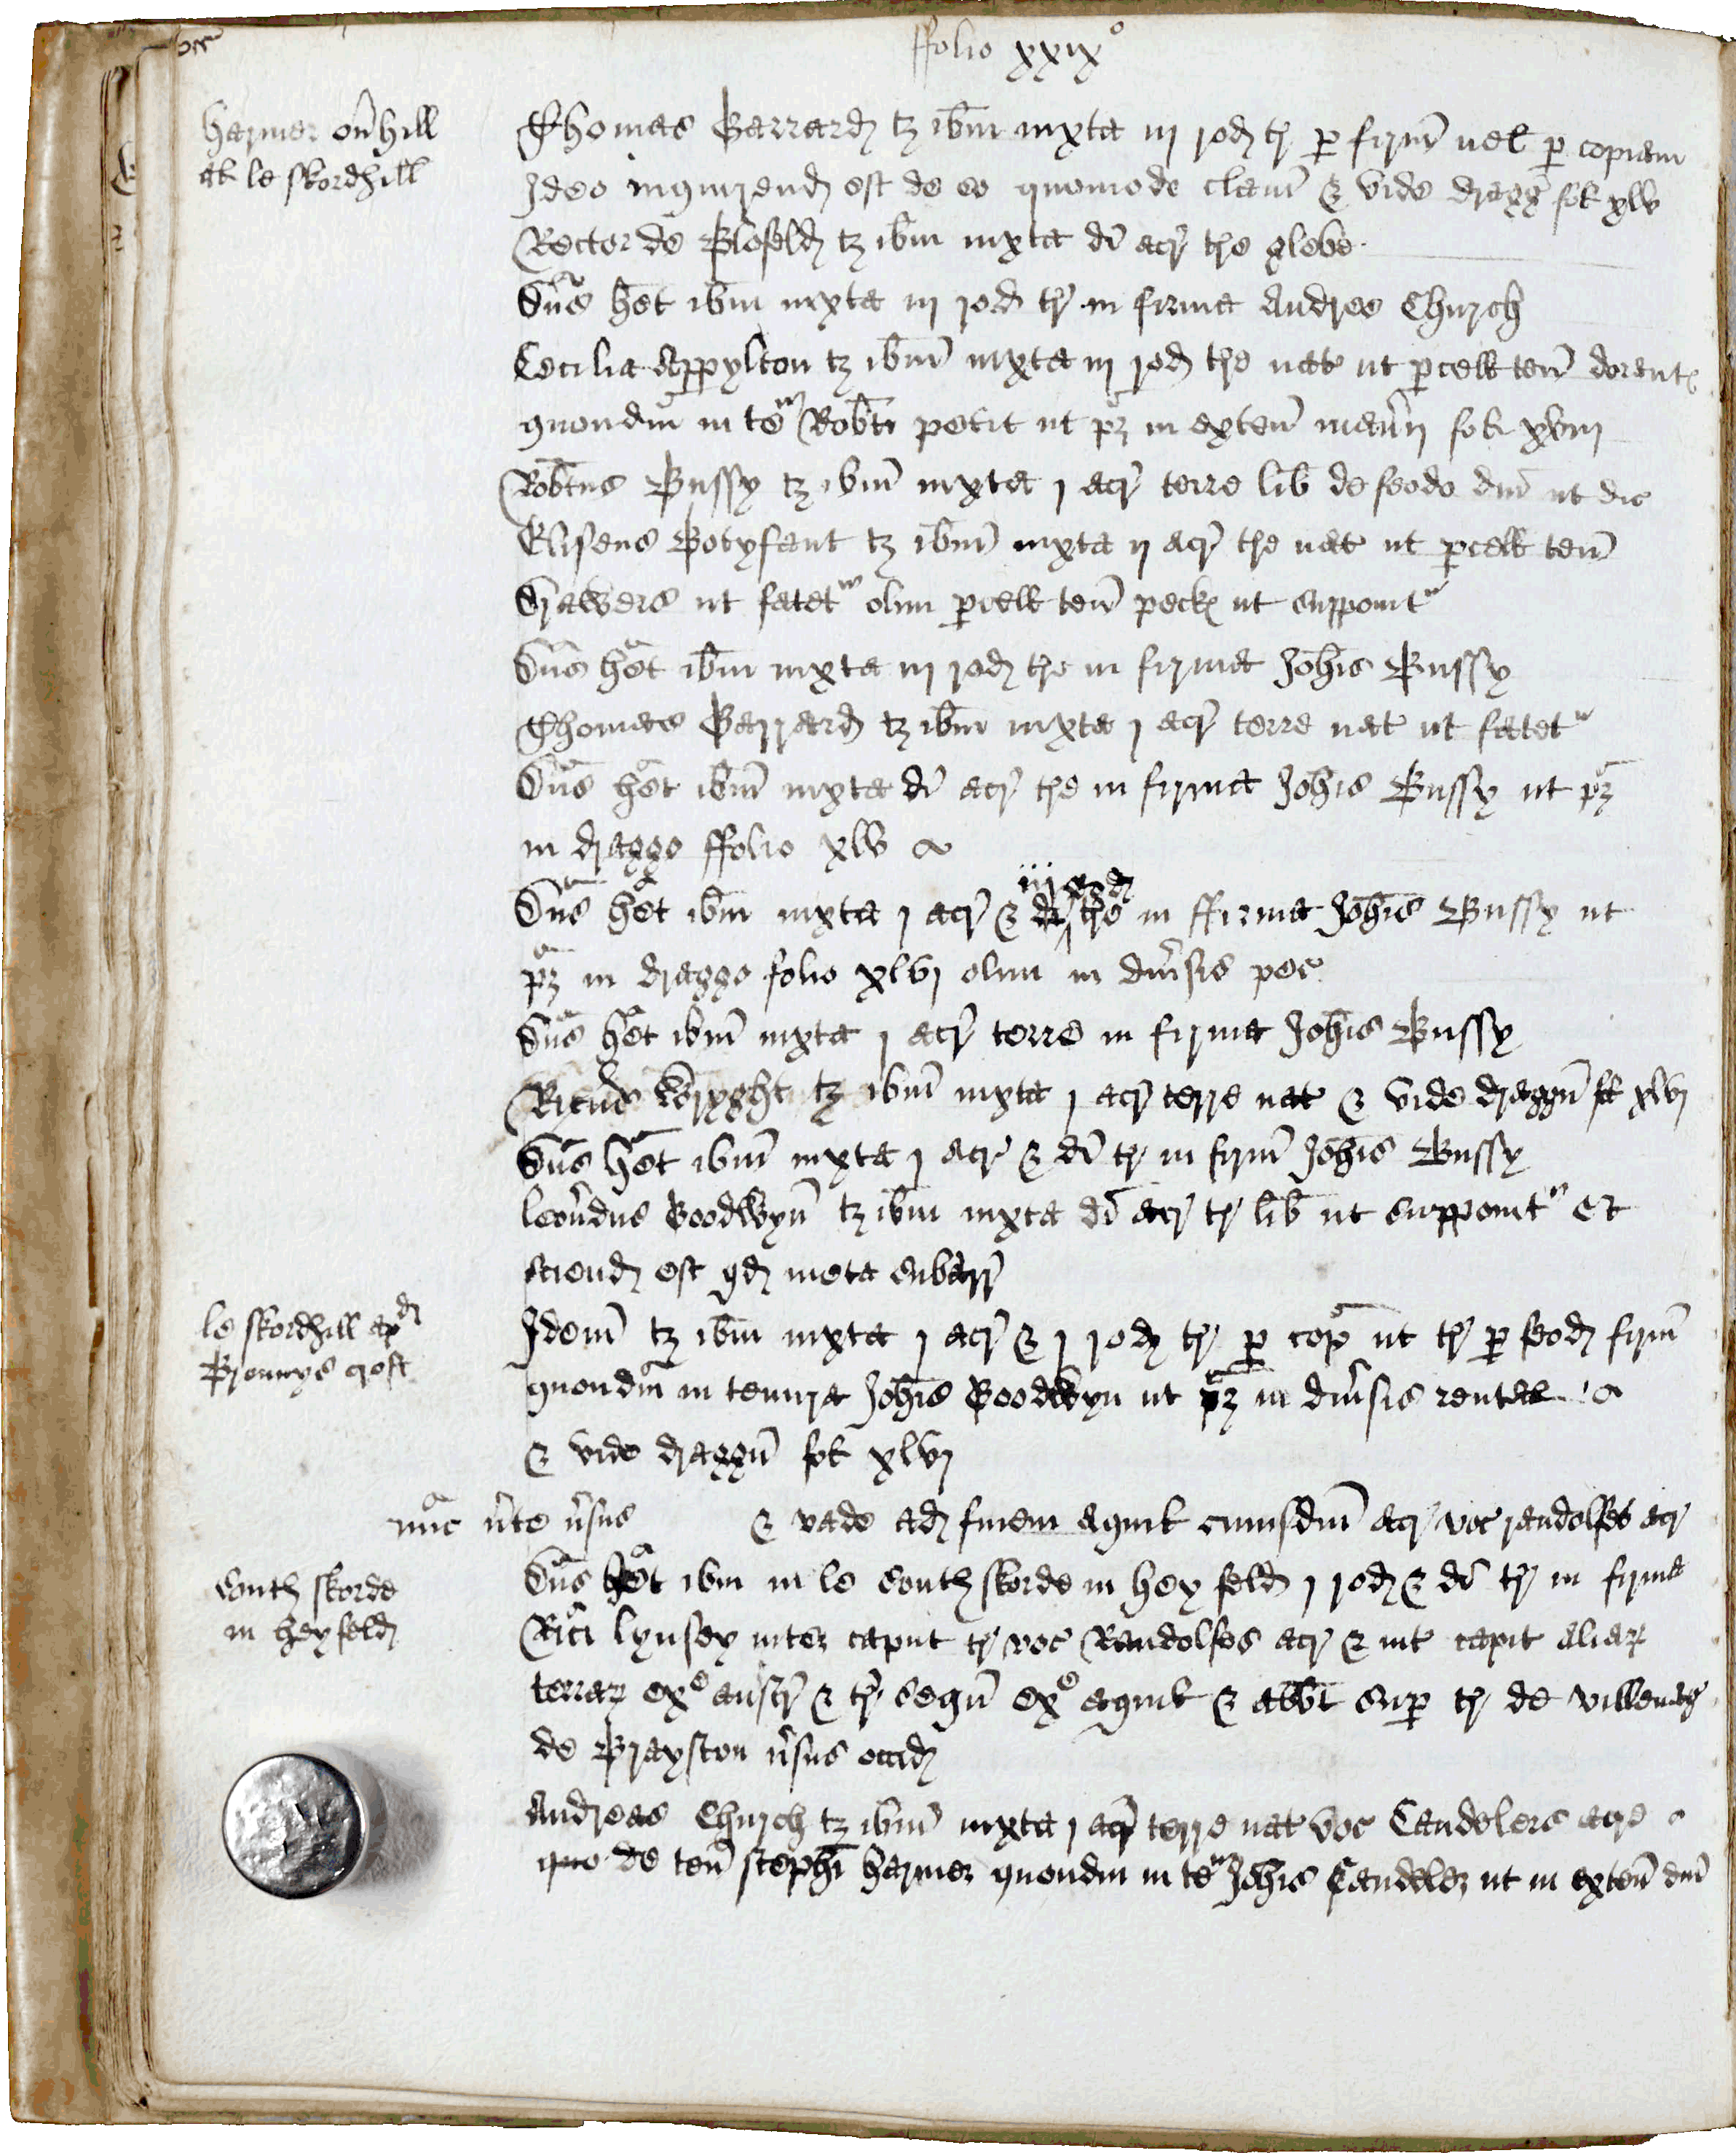 ffolio xxix°
Harmer ou͛hill
at le skordhill
Thomas Garrard tꝫ ibm̄ iuxta iij rod tr̄ ꝑ firm̄ uel ꝑ copiam
Ideo inquirend est de eo quomodo clam̄ & vide dragḡ fol xlv
Rector de Blofeld tꝫ ibm̄ iuxta di acr̄ tre glebe
Dn̄s het ibm̄ iuxta iij rod tr̄ in firma Andree Church
Cecilia Appylton tꝫ ibm̄ iuxta iij rod tre nat ut ꝑcell ten̄
quondm̄ in te Robti petit ut pꝫ in exten̄ man̄ij fol xviij
Robtus Bussy tꝫ ibm̄ iuxta j acr̄ terre lib̄ de feodo dn̄i ut dic
Eliseus Botyfant tꝫ ibm̄ iuxta ij acr̄ tre nat ut ꝑcell ten̄
Drawers ut fatet olim ꝑcell ten̄ peck ut supponit
Dn̄s het ibm̄ iuxta iij rod tre in firma Joh̄is Bussy
Thomas Garrard tꝫ ibm̄ iuxta j acr̄ terre nat ut fatet
Dn̄s het ibm̄ iuxta di acr̄ tre in firma Joh̄is Bussy ut pꝫ
in draggo ffolio xlv
iij rod
Dn̄s het ibm̄ iuxta j acr̄ & di tre in ffirma Joh̄is Bussy ut
pꝫ in draggo folio xlvj olim in diu͛sis pec
Dn̄s het ibm̄ iuxta j acr̄ terre in firma Joh̄is Bussy
Ricūs Wryght tꝫ ibm̄ iuxta j acr̄ terre nat & vide draggū fol xlvj
Dn̄s het ibm̄ iuxta j acr̄ & di tr̄ in firm̄ Joh̄is Bussy
Leon̄dus Goodwyn̄ tꝫ ibm̄ iuxta di acr̄ tr̄ lib̄ ut supponit Et
sciend est qd meta subarr̄
le skordhill apd
Brennys crost
Idem̄ tꝫ ibm̄ iuxta j acr̄ & j rod tr̄ ꝑ cop̄ ut tr̄ ꝑ feod firm̄
quondm̄ in tenura Joh̄is Goodwyn ut pꝫ in diu͛sis rental
& vide draggū fol xlvj
nūc u͛te u͛sus & vade ad finem aquil cuiusdm̄ acr̄ voc randolfes acr̄
South skorde
in heyfeld
Dn̄s het ibm in le South skorde in hey feld j rod & di tr̄ in firma
Rici Lynsey inter caput tr̄ voc Randolfes acr̄ & int capit aliaꝝ
terraꝝ exᵉ austr̄ & tr̄ sequn̄ exᵉ aquil & abbt suꝑ tr̄ de villenag̃
de Brayston u͛sus occid
Andreas Church tꝫ ibm̄ iuxta j acr̄ terre nat voc Candelers acre
quo de ten̄ steph̄i harmer quondm in te Joh̄is Candeler ut in exten̄ dn̄i